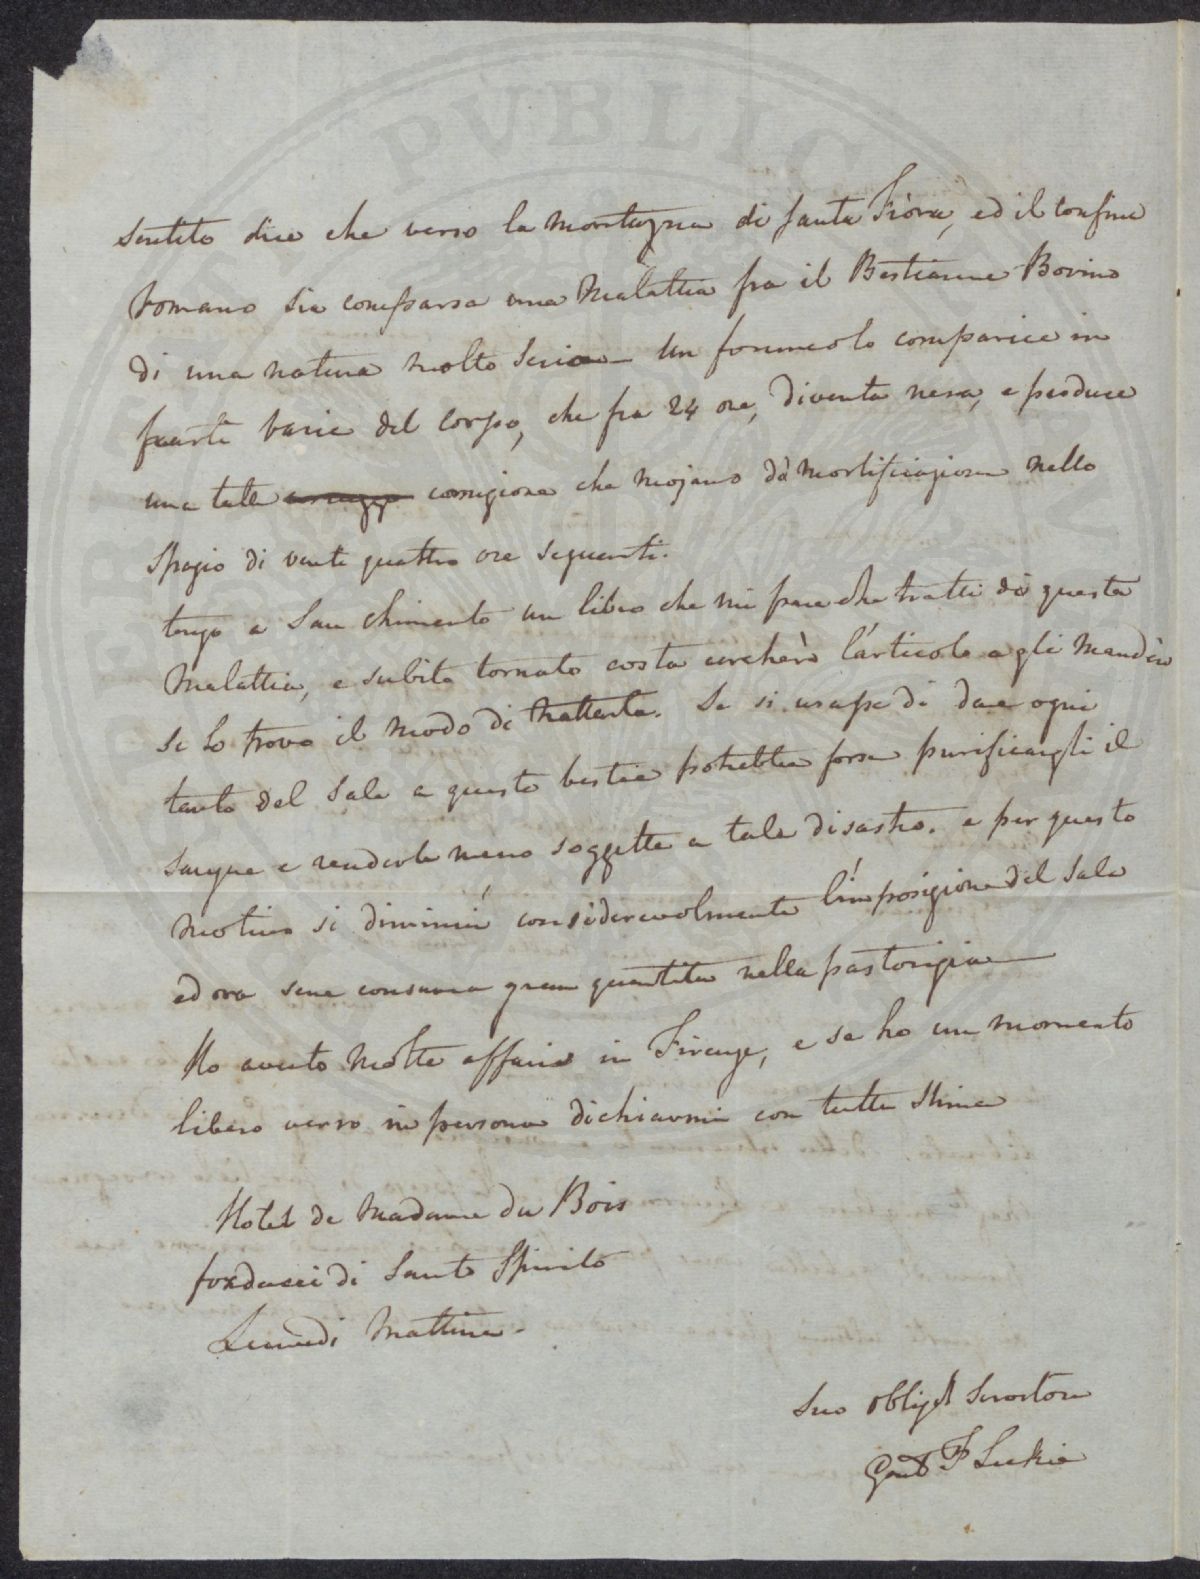 PVBLIC
sentito dire che verso la montagna di Santa Fiora, ed il confine
romano sia comparsa una Malattia fra il Bestiame Bovino
di una natura molto seria — Un foruncolo comparice in
parte varie del corpo, che fra 24 ore, diventa nera, e produce
una tale corrugione che mojano dà mortificazione nello
Spazio di vente quattro ore seguenti.
tengo a San Chimento un libro che mi pare che tratti di questa
Malattia, e subito tornato costa cercherò l'articolo e gli manderò
se lo trovo il modo di trattarla. Se si usasse di dare ogni
tanto del sale a queste bestie potrebbe forse purificargli il
sangue e renderle meno soggette a tale disastro. e per questo
motivo si diminuì considerevolmente l'imposizione del Sale
ed ora sene consuma gran quantita nella pastorizia —
Ho avuto molte affari in Firenze, e se ho un momento
libero verro in persona dichiarmi con tutta stima
Hotel de Madame du Bois
fondacci di Santo Spirito
Lunedi Mattina.
Suo obligd Servitore
F Leckie